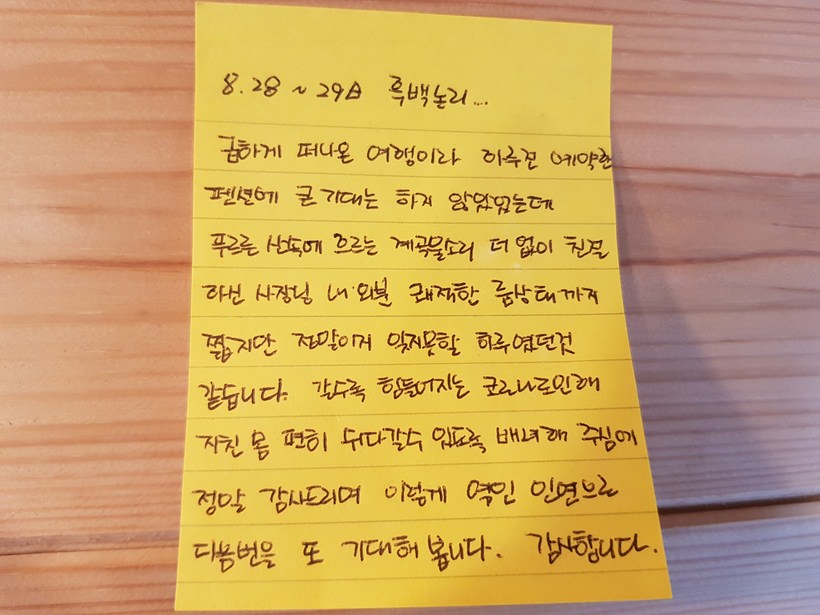 8.28 ~ 29日 흑백놀리...
급하게 떠나온 여행이라 하루전 예약한
펜션에 큰 기대는 하지 않았었는데
푸르른 산속에 흐르는 계곡물소리 더 없이 친절
하신 사장님 내·외분 쾌적한 룸상태까지
짧지만 정말이지 잊지못할 하루였던것
같습니다. 갈수록 힘들어지는 코로나로인해
지친 몸 편히 쉬다갈수 있도록 배녀해 주심에
정말 감사드리며 이렇게 엮인 인연으로
다음번을 또 기대해 봅니다. 감사합니다.